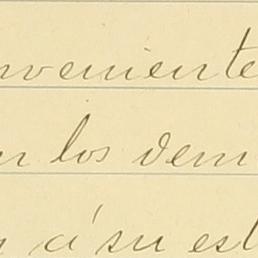 nveniente
n los dem
n á su est